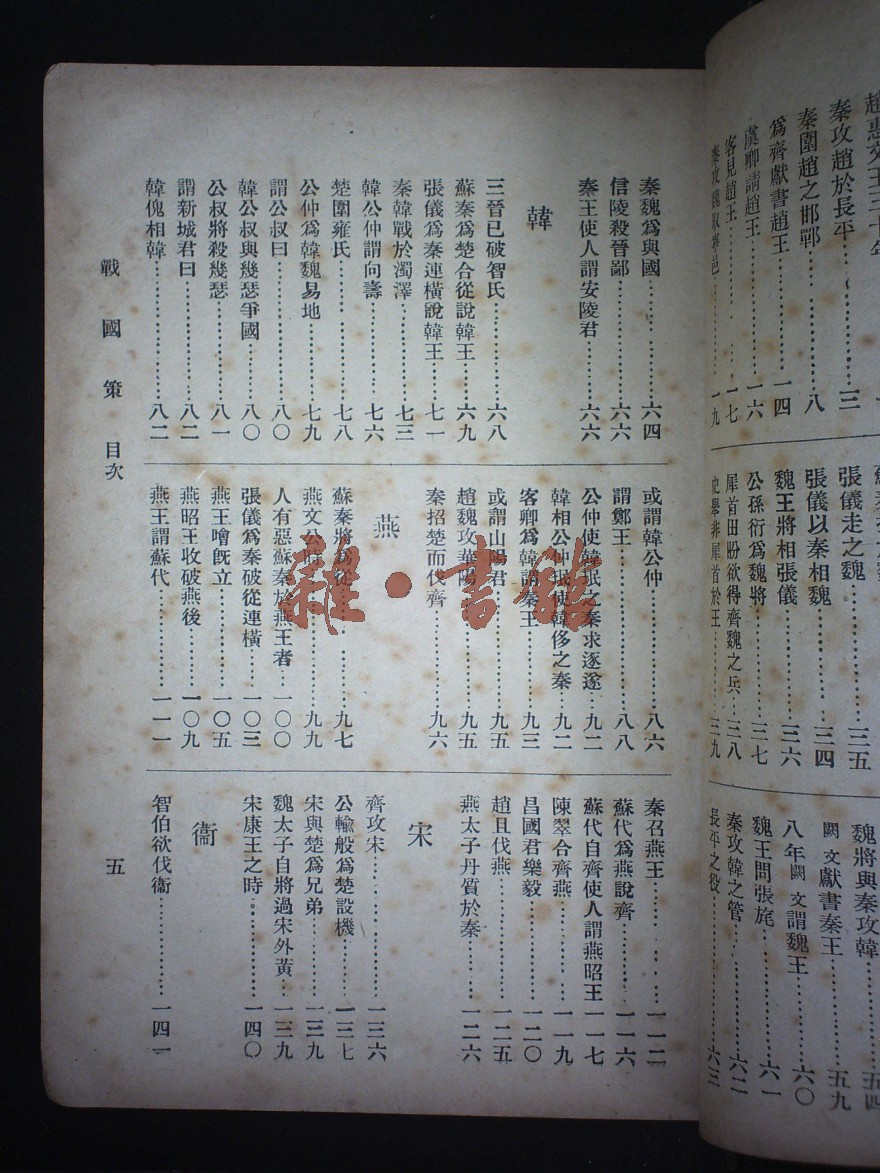 秦攻趙於長平．…………三
秦圍趙之邯鄲…………八
爲齊獻書趙王…………一四
虞卿請趙王…………一六
客見趙王…………一七
張儀走之魏…………三五
張儀以秦相魏…………三四
魏王將相張儀…………三六
公孫衍爲魏將…………三七
犀首田盼欲得齊魏之兵…………三八
史舉非犀首於王…………三九
魏將與秦攻韓…………五四
闕文獻書秦王…………五九
八年闕文謂魏王…………六〇
魏王問張旄…………六一
秦攻韓之管…………六二
長平之役…………六三
秦魏爲與國…………六四
信陵殺晉鄙…………六六
秦王使人謂安陵君…………六六
韓
三晉已破智氏…………六八
蘇秦爲楚合從說韓王…………六九
張儀爲秦連橫說韓王…………七一
秦韓戰於濁澤…………七三
韓公仲謂向壽…………七六
楚圍雍氏…………七八
公仲爲韓魏易地…………七九
謂公叔曰…………八〇
韓公叔與幾瑟爭國…………八〇
公叔將殺幾瑟…………八一
謂新城君曰…………八二
韓傀相韓…………八二
或謂韓公仲…………八六
謂鄭王…………八八
公仲使韓珉之秦求逐遂…………九二
韓相公仲珉使韓侈之秦…………九二
客卿爲韓謂秦王…………九三
或謂山陽君…………九五
趙魏攻華陽…………九五
秦招楚而伐齊…………九六
燕
蘇秦將爲從…………九七
燕文公時…………九九
人有惡蘇秦於燕王者…………一〇〇
張儀爲秦破從連橫…………一〇三
燕王噲旣立…………一〇五
燕昭王收破燕後…………一〇九
燕王謂蘇代…………一一一
秦召燕王…………一一二
蘇代爲燕說齊…………一一六
蘇代自齊使人謂燕昭王…………一一七
陳翠合齊燕…………一一九
昌國君樂毅…………一二〇
趙且伐燕…………一二五
燕太子丹質於秦…………一二六
宋
齊攻宋…………一三六
公輸般爲楚設機…………一三七
宋與楚爲兄弟…………一三九
魏太子自將過宋外黃…………一三九
宋康王之時…………一四〇
衞
智伯欲伐衞…………一四一
戰國策 目次
五
雜·書館